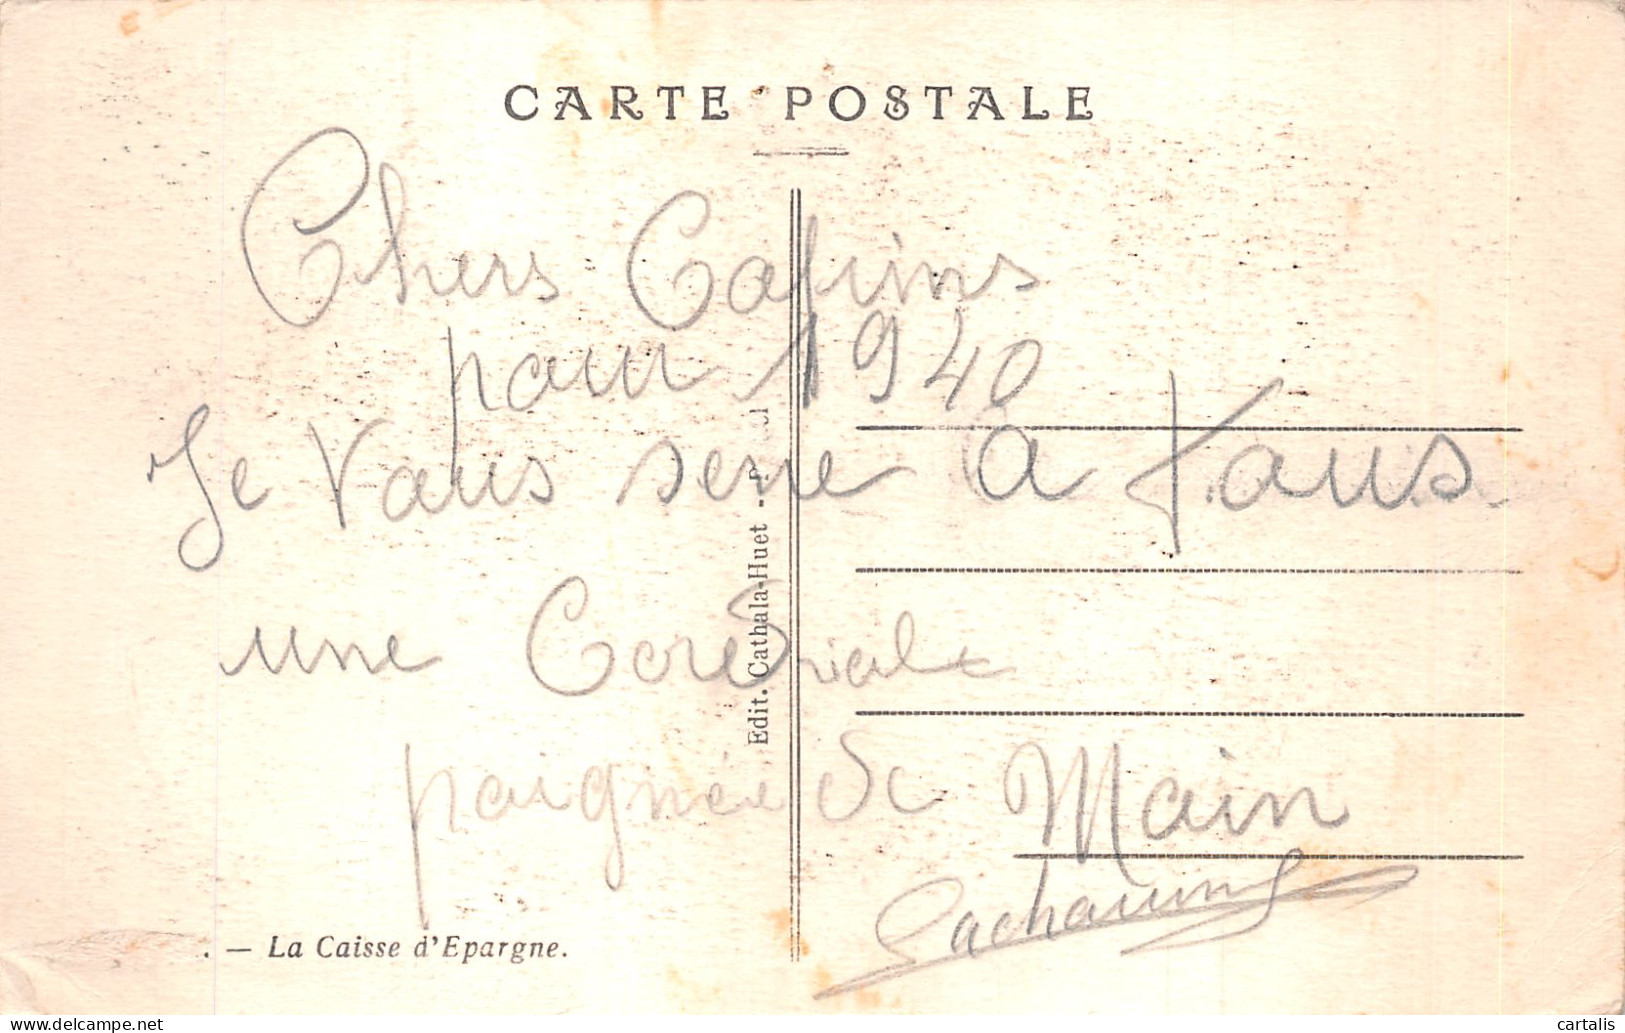 CARTE POSTALE
Chers Copins
pour 1940
Je vous serre a tous
une Cordiale
poignée de Main
Edit. Cathala-Huet -
. — La Caisse d'Epargne.
cartalis
delcampe.net